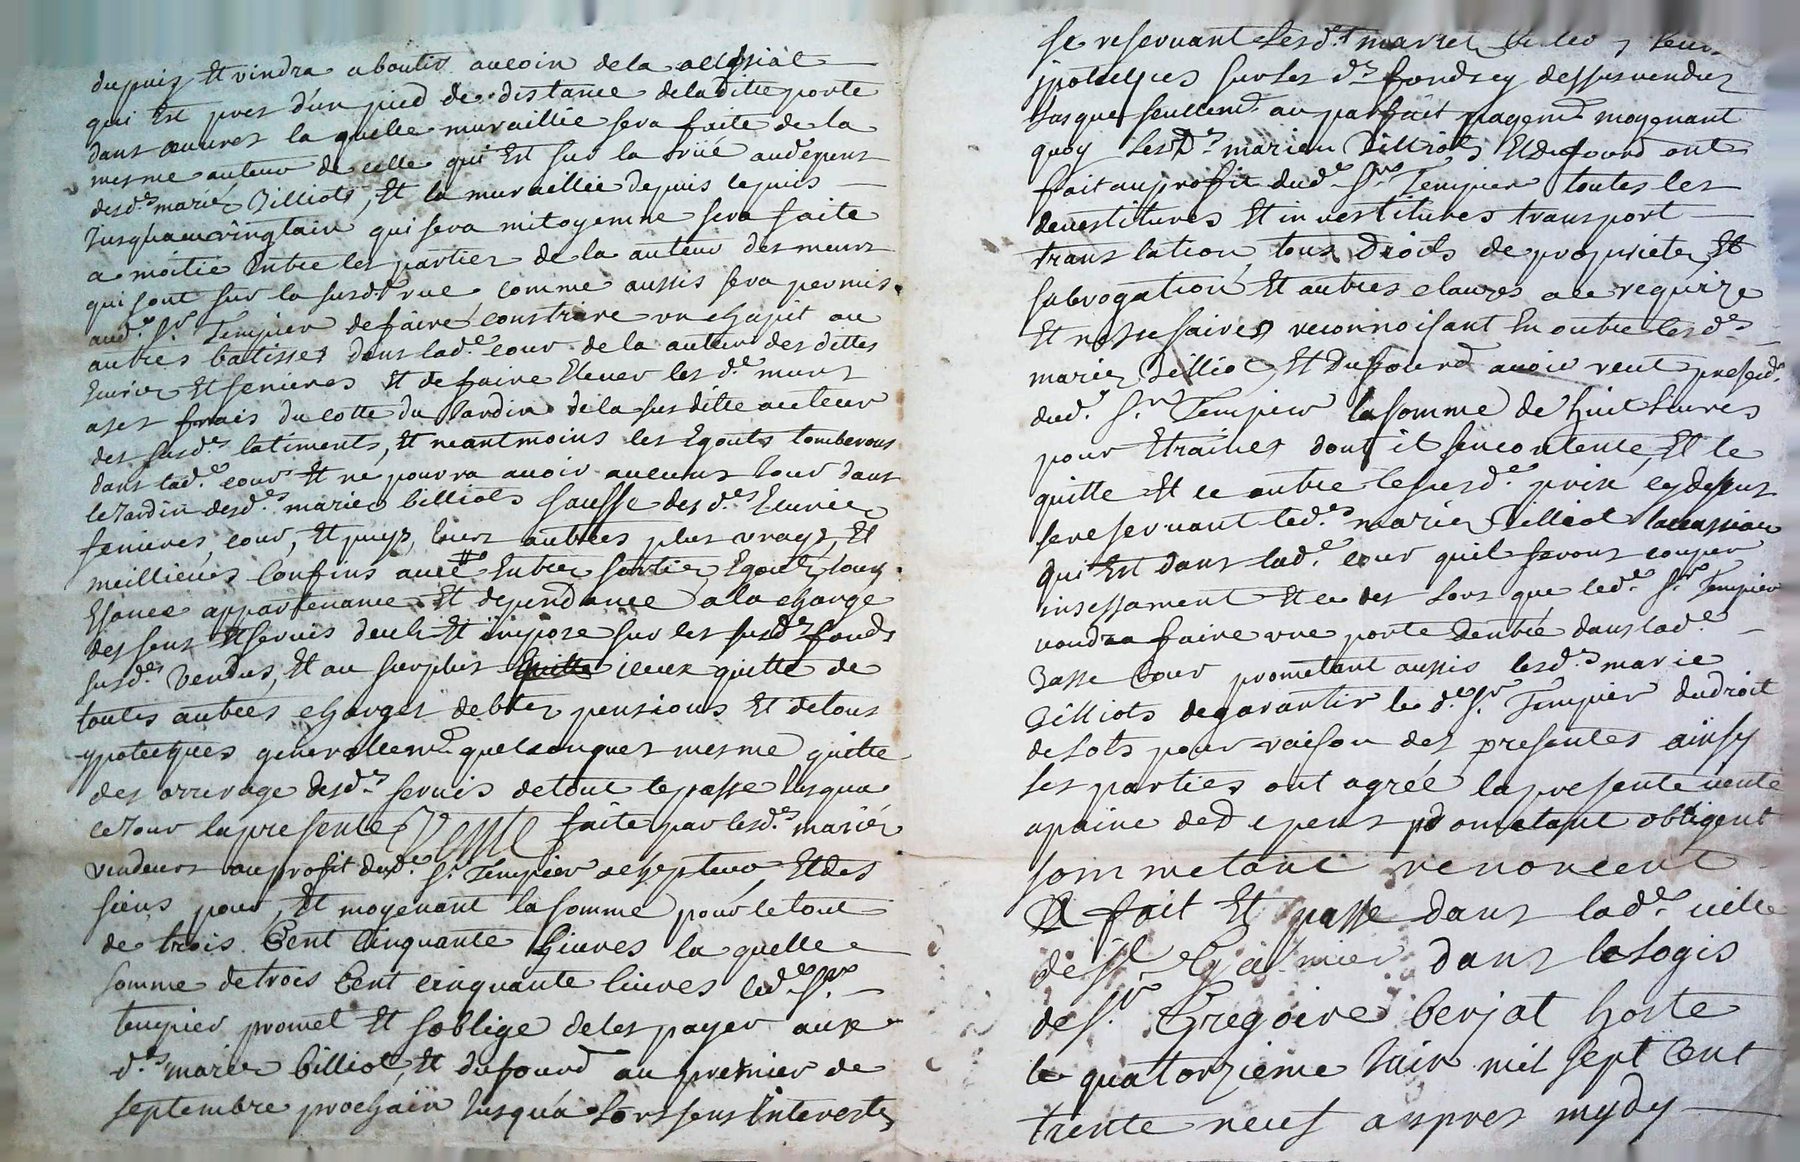 du puis Et viendra aboutir au coin de la
qui Est pres d'un pied de distance de la ditte porte
dans œuvres la quelle muraillie sera faite de la
mesme auteur de celle qui Est sur la rüé audépens
desd.s mariés Billiots, Et la muraillie depuis le puis
Jusqu'au vingtain qui sera mitoyenne sera faite
a moitié Entre les parties de la auteur des meurs
qui sont sur la susd.e rue, comme aussis sera permis
aud.t S.r Tempier de faire construire un chapit ou
autres batisses dans lad.e cour de la auteur des dittes
Ecuries Et fenieres Et de faire Elever les d.s murs
a ses frais du cotte du Jardin de la susditte auteur
des susd.s batiments, Et neantmoins les Egouts tomberons
dans lad.e cour Et ne pourra avoir aucuns Jour dans
le Jardin desd.s mariés billiots sauffe des d.s Ecuries
fenieres, cour, Et puys, leurs autres plus vrays, Et
meillieurs Confins avec Entrés sorties Egouts, cours
Esance appartenance Et dependance a la charge
des sens Et servis deub Et impozé sur les susd.s fonds
susd.s Vendus, Et au surplus iceux quitte de
toutes autres charges debtes pensions Et de tous
ypotecques generallem.t quelconques mesme quitte
des arrerage desd.s servis de tout le passe Jusqua
ce Jour la presente Vente faite par lesd.s mariés
vendeurs au profit dud.t S.r Tempier achepteur, Et des
siens pour, Et moyenant la somme pour le tout
de trois Cent Cinquante Livres la quelle
somme de trois Cent cinquante livres led.t S.r
tempier promet Et soblige de les payer aux
d.s mariés billiot, Et dufourd au premier de
septembre prochain Jusqu'a Lors sens Interests
se reservant lesd.s mariés
ipoteques sur les d.s fonds cy dessus vendus
Jusques seullem.t au parfait payem.t moyenant
quoy lesd.s mariés Billiots Et dufourd ont
fait au profit dud.t S.r Tempier toutes les
devestitures Et investitures transport
translation, tous Droits de propriete, Et
subrogation Et autres clauzes a ce requize
Et nessesaires reconnoisant En outre les d.s
mariés Billiot, Et Dufourd avoir reçut presend.t
dud.t S.r Tempier la somme de huit Livres
pour Etraines dont il sen contente, Et le
quitte Et ce outre le susd.t prix cy dessus
se reservant led.s mariés Billiot
qui Est dans lad.e cour quil feront couper
insessament Et ce des Lors que led.t S.r Tempier
voudra faire une porte dentré dans lad.e
Basse Cour prometant aussis lesd.s marié
Billiots de garantir le d.t S.r Tempier du droit
de Lots pour raison des presentes ainsy
les parties ont agréé la presente vente
a paine de d epens prometant obligent
sommetant renoncent
fait Et passe dans lad.e ville
de S.t Galmier dans le Logis
de S.r Gregoire berjat hoste
le quatorzieme Juin mil sept Cent
trente neuf aspres mydy